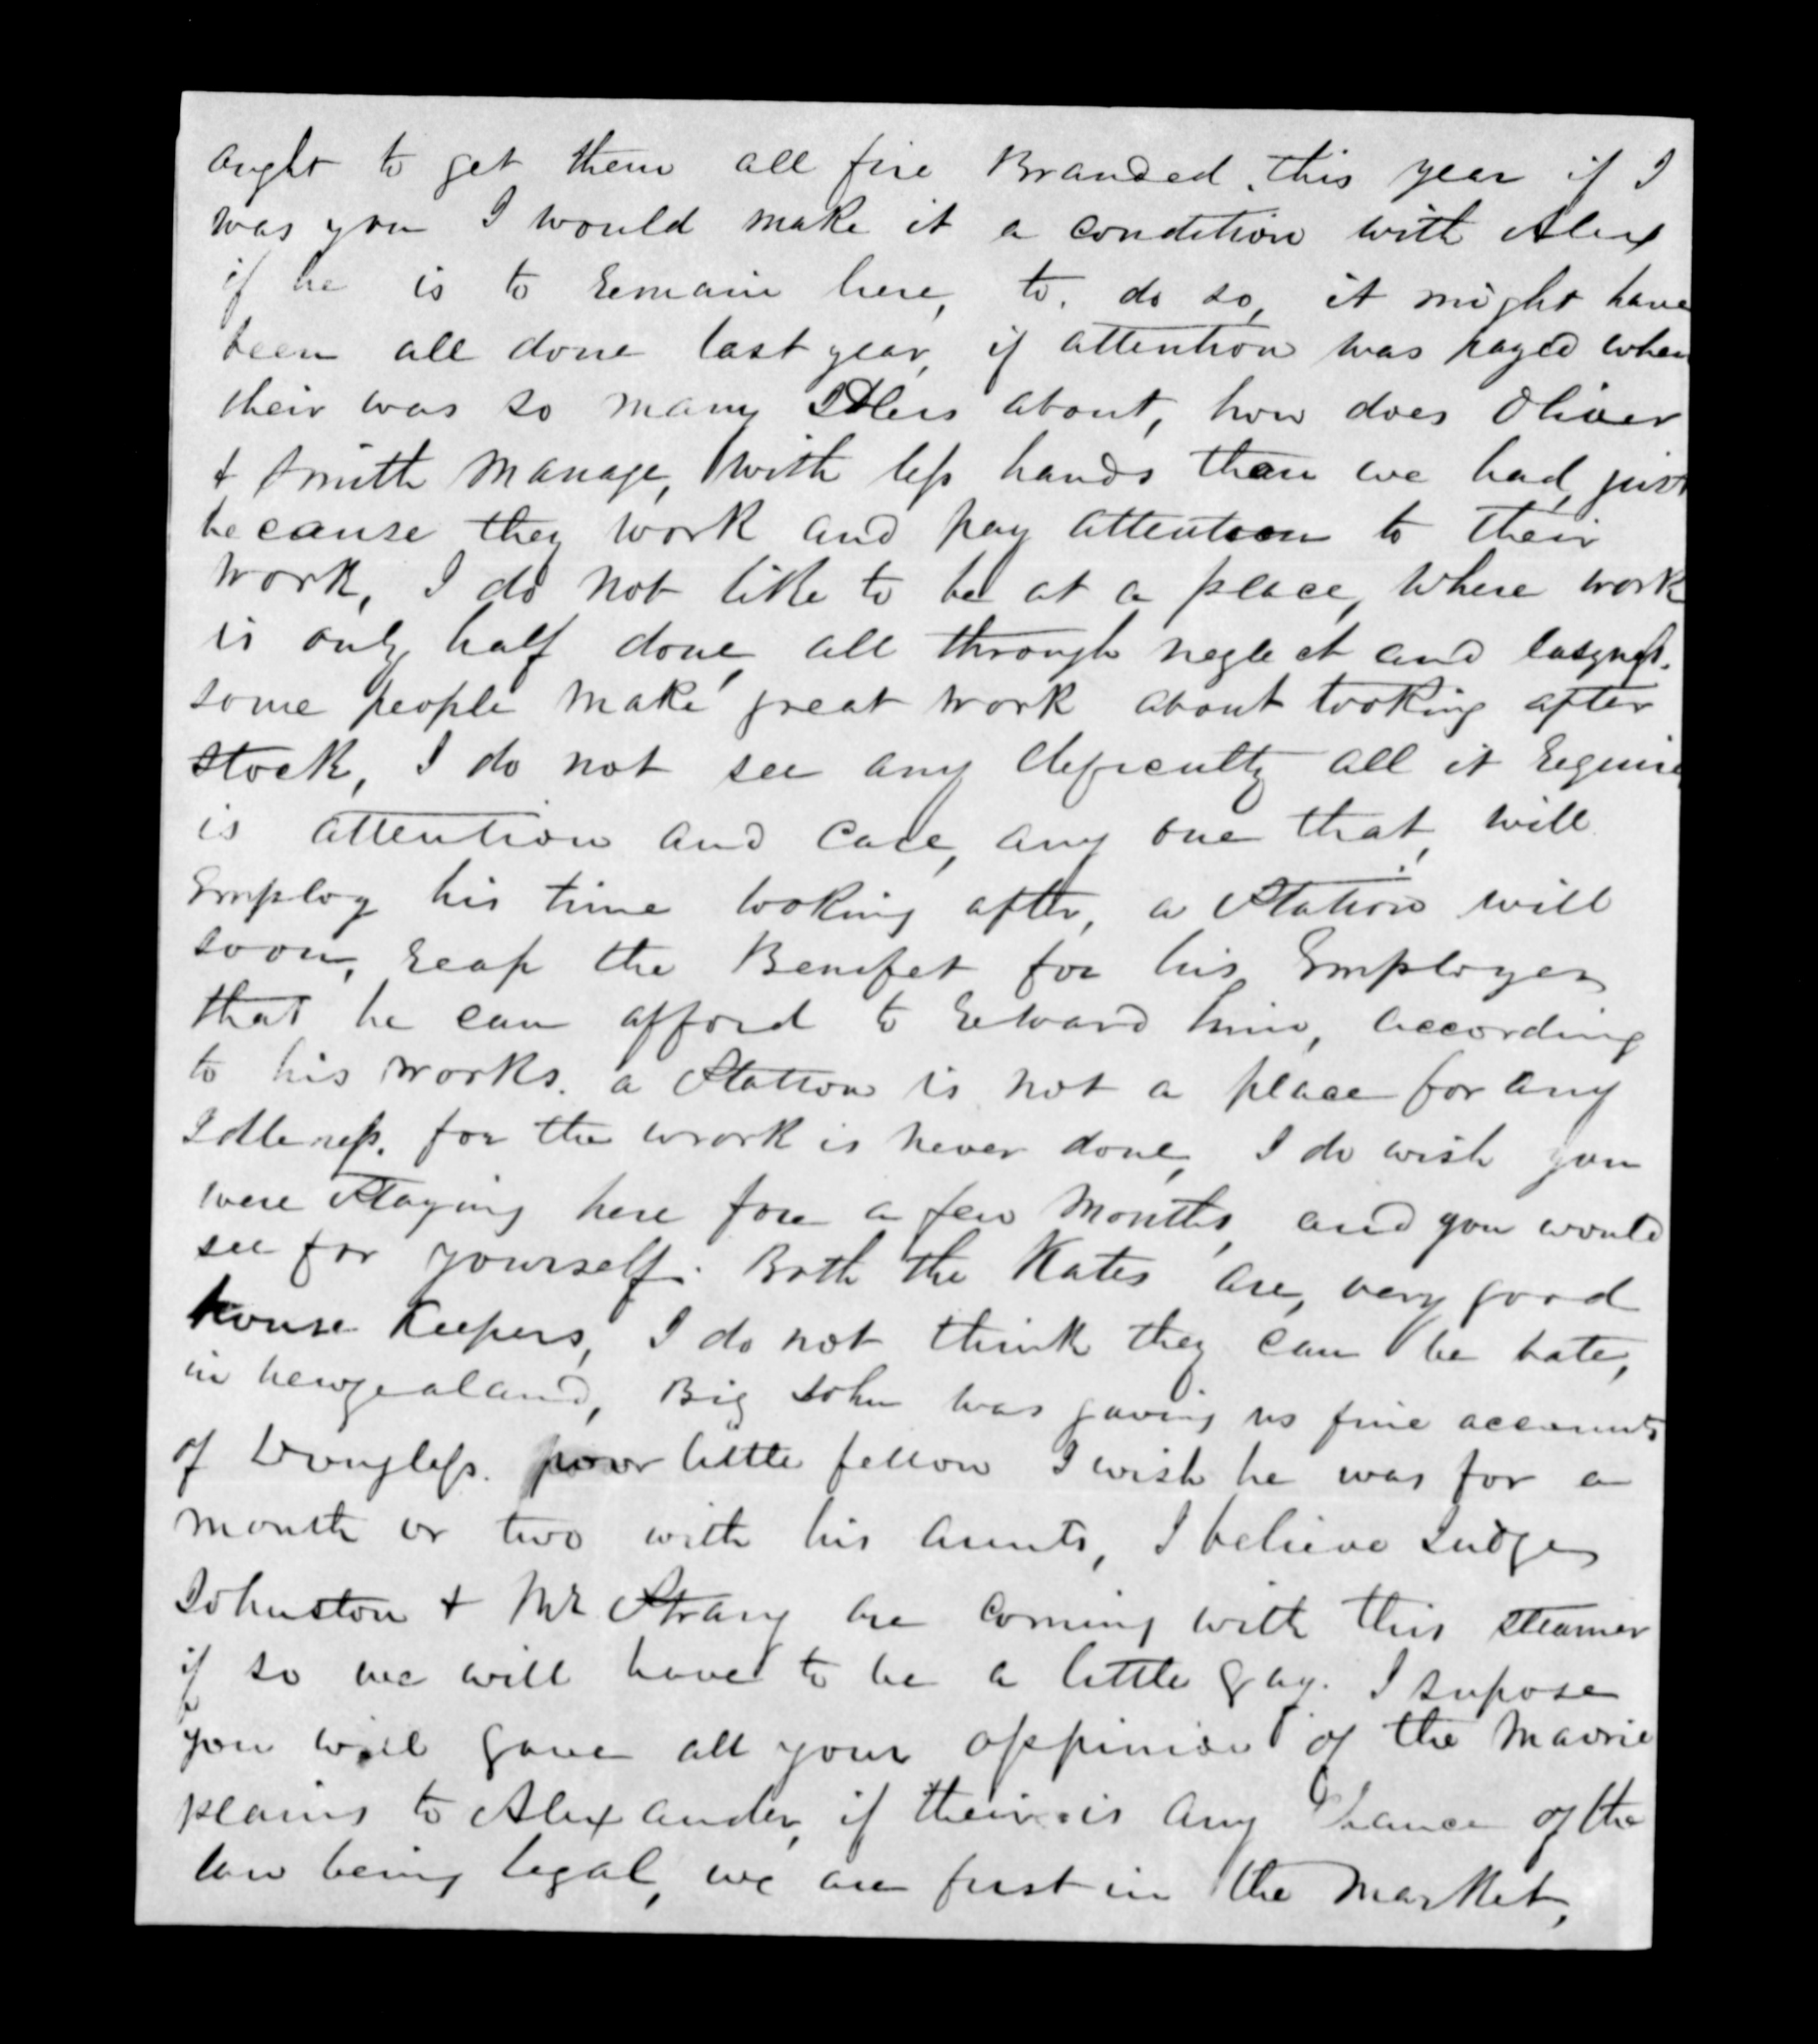 aught to get them all fire Branded, this year if I
was you I would make it a condition with Alex
if he is to remain here, to. do so, it might have
been all done last year, if attention was payed when
their was so many Idlers about, how does Oliver
& Smith manage, with less hands than we had, just
because they work and pay attention to their
work, I do not like to be at a place, where work
is only half done, all through neglect and lasyness.
some people make great work about looking after
stock, I do not see any deficulty all it require
is attention and care, any one that, will
Employ his time looking after, a Station will
soon, reap the Benifet for his Employer
that he can afford to reward him, according
to his works. a Station is not a place for any
Idleness. for the work is never done, I do wish you
were Staying here for a few months, and you would
see for yourself. Both the Kates are, very good
house Keepers, I do not think they can be bate,
in newzealand, Big John was gaving us fine accounts
of Douglass. poor little fellow I wish he was for a
month or two with his aunts, I believe Judge
Johnston & Mr Strang are coming with this steamer
if so we will have to be a little gay. I supose
you will gave all your oppinion of the Maorie
plains to Alexander, if their is any Chance of the
law being legal, we are first in the market,